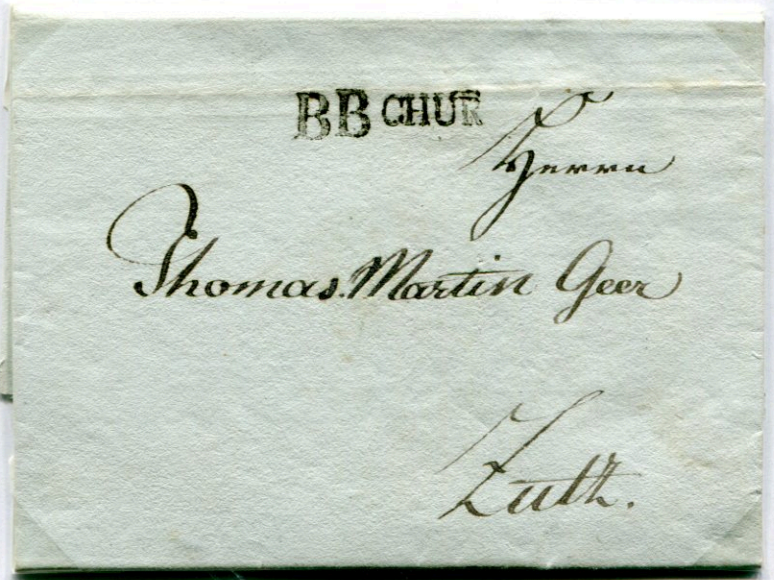 BB CHUR
Herrn
Thomas. Martin Geer